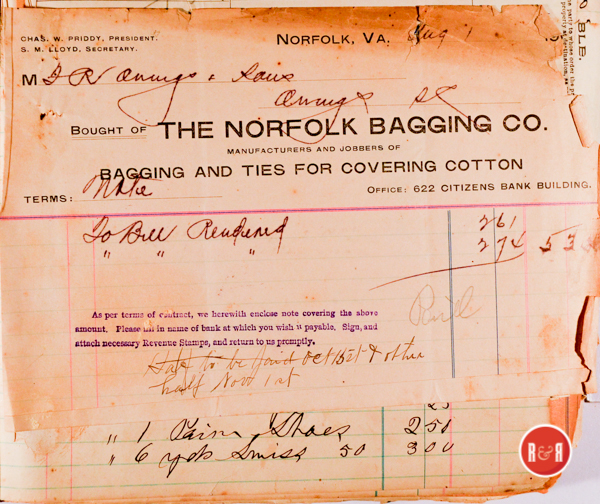 CHAS. W. PRIDDY, PRESIDENT.
S. M. LLOYD, SECRETARY.
NORFOLK, VA. Aug 1
M J R Owings & Sons
Owings SC
BOUGHT OF THE NORFOLK BAGGING CO.
MANUFACTURERS AND JOBBERS OF
BAGGING AND TIES FOR COVERING COTTON
TERMS: Note OFFICE: 622 CITIZENS BANK BUILDING.
To Bill Rendered 261
" " " 274 53
As per terms of contract, we herewith enclose note covering the above
amount. Please fill in name of bank at which you wish it payable. Sign, and
attach necessary Revenue Stamps, and return to us promptly.
to be Oct 15st & other
half Nov 1st
" 1 Pair Shoes 2 50
" 6 yds Swiss 50 3 00
BLE.
R&R